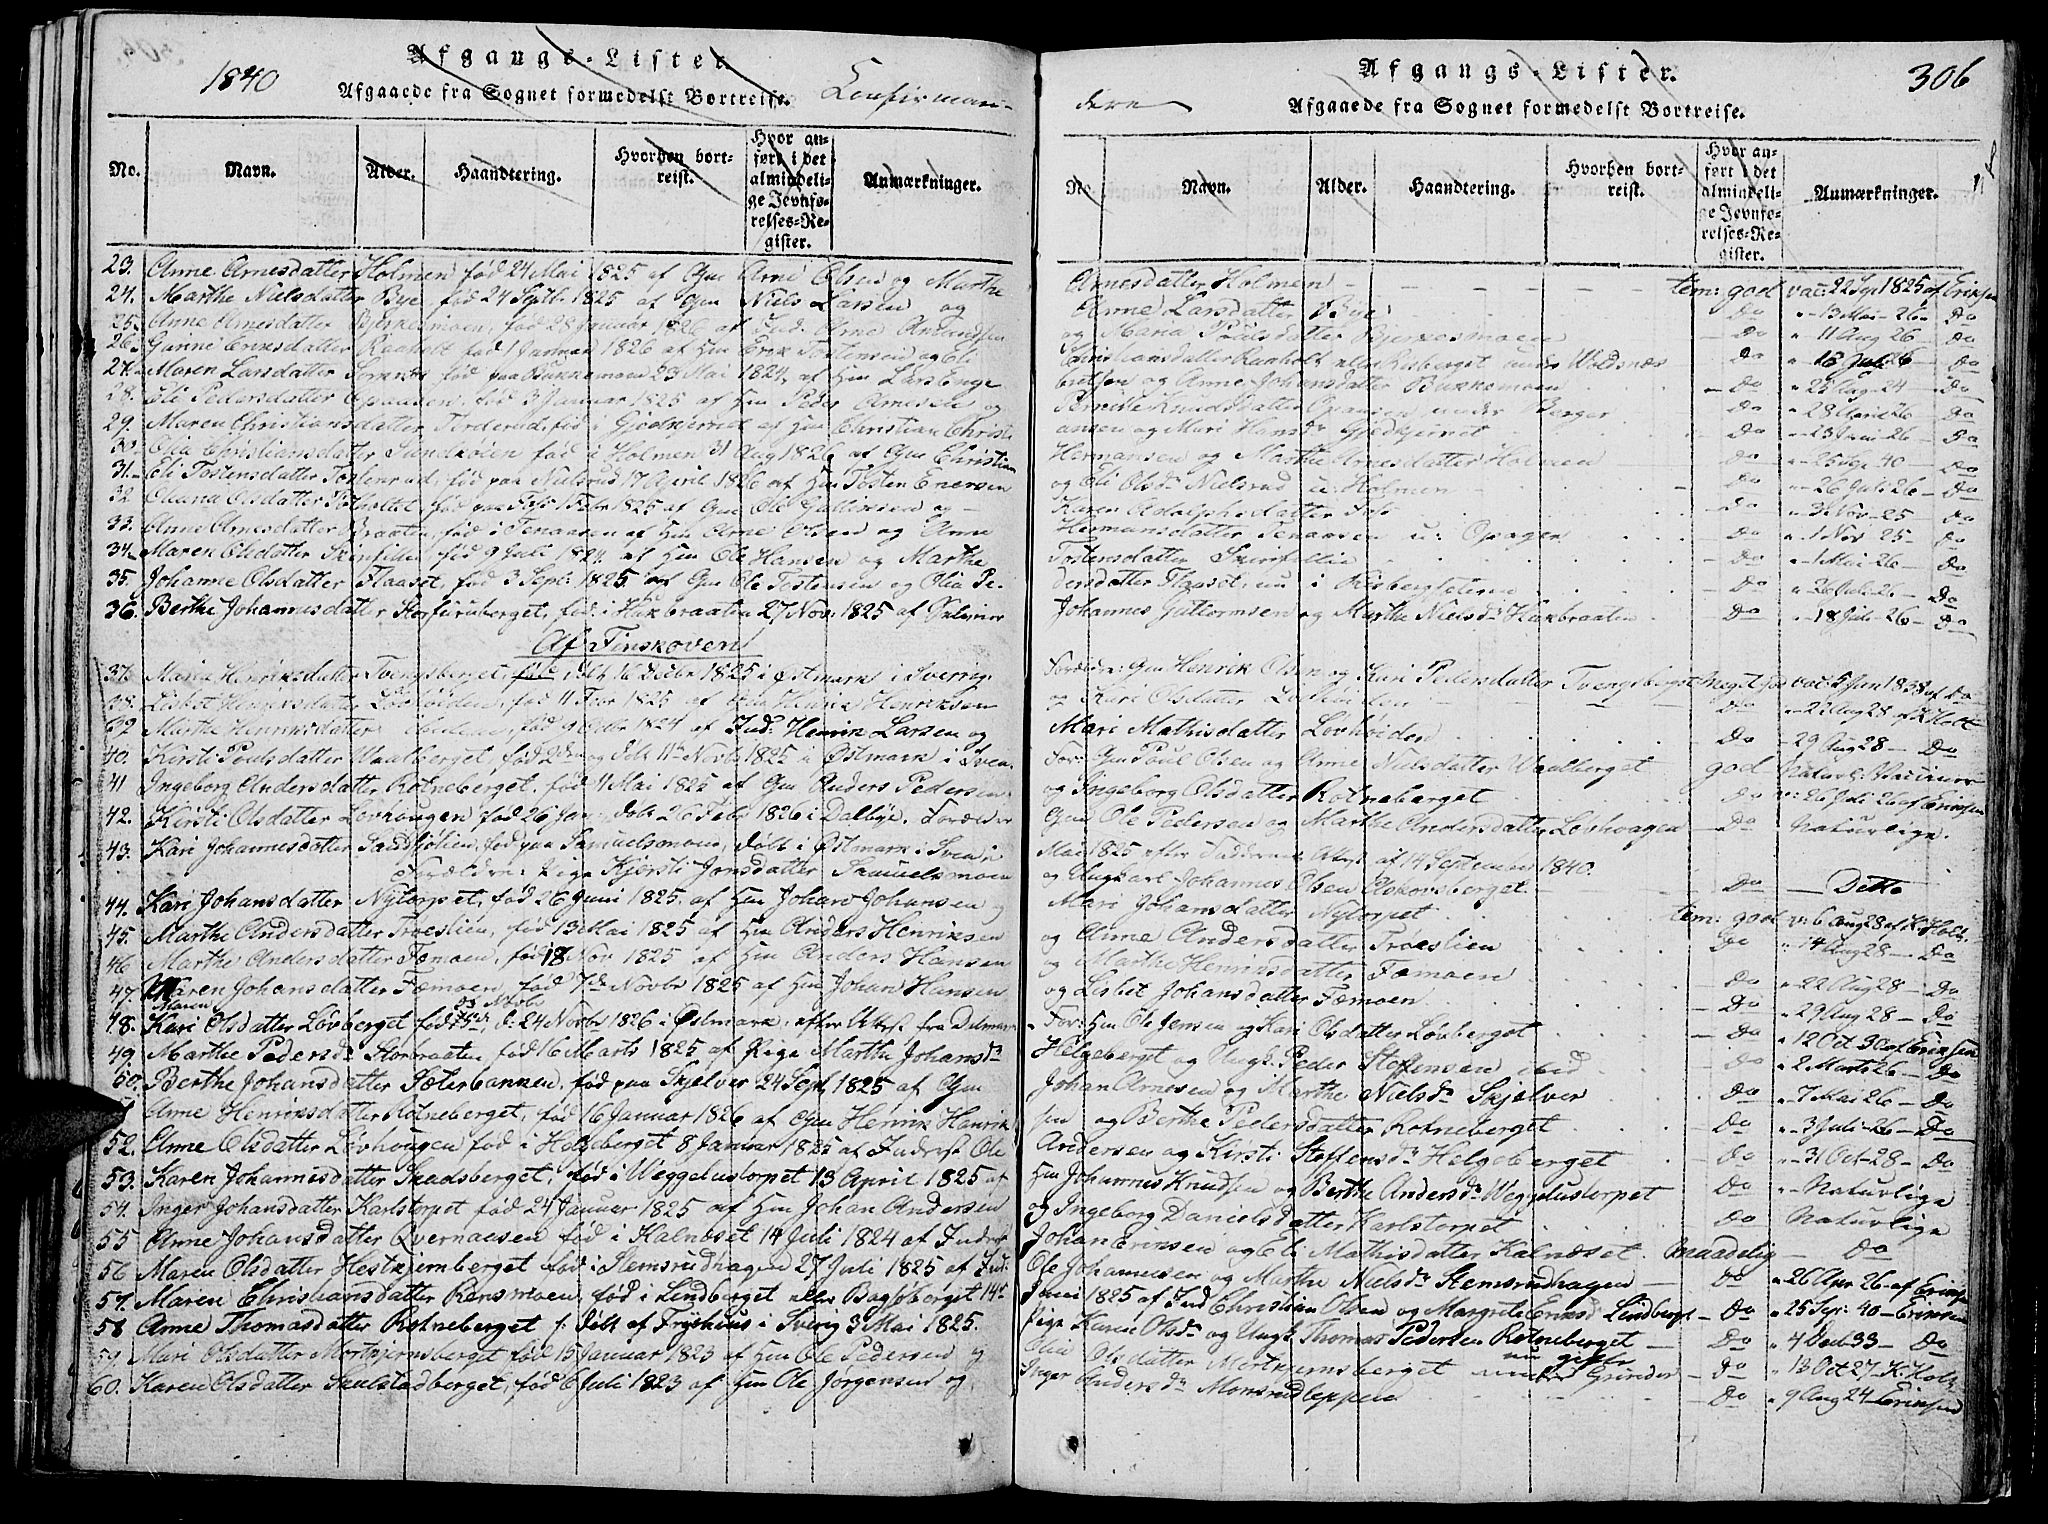 Afgangs-Lister
1840
Afgaaede fra Sognet formedelst Bortreise.
Confirman-
No.
Navn.
Alder.
Haandtering.
Hvorhen bort-
reist.
Hvor an-
ført i det
almindeli-
ge Jevnfø-
relses-Re-
gister.
Anmærkninger.
23. Anne Arnesdatter Holmen fød 24 Mai 1825 af Gm Arne Olsen og Marthe
24. Marthe Nielsdatter Bye, fød 24 Septb. 1825 af Gm Niels Larsen og
25. Anne Arnesdatter Bjerkesmoen, fød 28 Januar 1826 af Ind. Arne Amundsen
26. Gunne Eriksdatter Ranholt fød 1 Januar 1826 af Hm Erik Tostensen og Eli
27. Maren Larsdatter fød paa Bukkemoen 23 Mai 1824 af Hm Lars Enge
28. Eli Pedersdatter Opaasen, fød 3 Januar 1825 af Hm Peder Arnesen og
29. Maren Christiansdatter Torderud, fød i Gjedtjernet af Hm Christian Christi
30. Olia Christiansdatter Sundkøien fød i Holmen 31 Aug 1826 af Gm Christian
31. Eli Tostensdatter Tostenrud, fød paa Nielsrud 17 April 1826 af Hm Tosten Enersen
32. Oliana Olsdatter Toholtet fød paa 1 Febr 1825 af Gm Ole Gulliksen og
33. Anne Arnesdatter Braaten, fød i Tenaasen af Hm Arne Olsen og Anne
34. Maren Olsdatter Skinfellen fød 9 Juli 1824 af Hm Ole Hansen og Marthe
35. Johanne Olsdatter Flaaset, fød 3 Sept: 1825 af Gm Ole Tostensen og Olia Pe-
36. Berthe Johannesdatter Storfuruberget, fød i Hukbraaten 27 Nov. 1825 af
Af Finskoven
37. Maria Henriksdatter Tvengsberget, føde, døbt 16 Decbr 1825 i Østmark i Sverrig.
38. Lisbet Henriksdatter Løvhøiden, fød 11 Febr 1825 af Henrik Henriksen
39. Marthe Henriksdatter ibidem, fød 9 1824 af Ind: Henrik Larsen og
40. Kirsti Poulsdatter Waalberget, fød 2den og døbt 11te Novbr 1825 i Østmark i Sven.
41 Ingeborg Andersdatter Rotneberget, fød 4 Mai 1825 af Gm Anders Pedersen
42. Kirsti Olsdatter Løvhougen fød 26 Jan døbt 26 Febr 1826 i Dalbye. Forældre
43. Kari Johannesdatter fød paa Samuelsmoen, døbt i Østmark i Sverrig
Forældre: Pige Kjersti Jonsdatter Samuelsmoen
44. Kari Johansdatter Nytorpet, fød 26 Juni 1825. af Hm Johan Johansen
45. Marthe Andersdatter Troeslien, fød 13 Mai 1825 af Hm Anders Henriksen
46 Marthe Andersdatter Fæmoen, fød 18 Nov 1825 af Hm Anders Hansen
47. Maren Johansdatter Fæmoen, fød 7de Novbr 1825 af Hm Johan Hansen
48. Kari Olsdatter Løvberget fød d: 24 Novbr 1826 i Østmark, efter Attest fra
49. Marthe Pedersdr Storbraaten fød 16 Marts 1825 af Pige Marthe Johansdr
50. Berthe Johansdatter Sæterbakken, fød paa Skjelver 24 Sept 1825 af Gm
Anne Henriksdatter Rotneberget, fød 16 Januar 1826 af Gm Henrik Henrik
52. Anne Olsdatter Løvhougen fød i Helgeberget 8 Januar 1825 af Inderst Ole
53. Karen Johannisdatter Skadsberget, fød i Weggelustorpet 13 April 1825 af
54. Inger Johansdatter Karlstorpet fød 24 Januar 1825 af Hm Johan Andersen
55 Anne Johansdatter Qvernaasen fød i Kalnæset 14 Juli 1824 af Inders
56 Maren Olsdatter Hestkjernberget fød i Stemsrudhagen 27 Juli 1825 af Ind:
57. Maren Christiansdatter Rensmoen, fød i Lindberget eller Bagsøberget 14de
58 Anne Thomasdatter Rotneberget f. døbt af Fryksius i Sverig 3 Mai 1825.
59. Mari Olsdatter Mortkjernsberget fød 15 Januar 1823 af Hm Ole Pedersen og
60. Karen Olsdatter Skulstadberget, fød 6 Juli 1823 af Hm Ole Jørgensen og
Afgangs-Lister.
306
dere
Afgaaede fra Sognet formedelst Bortreise.
No.
Navn.
Alder.
Haandtering.
Hvorhen bort-
reist.
Hvor an-
ført i det
almindeli-
ge Jevnfø-
relses-Re-
gister.
Anmærkninger.
Arnesdatter Holmen tem: god vac: 22 Sep 1825 af Eriksen
Anne Larsdatter Bye Do " 13 Mai 26 Do
og Maria Poulsdatter Bjerkesmoen Do " 11 Aug 26 Do
Christiansdatter Ranholt eller Risberget under Woldsnæs Do " 16 Juli 26 Do
bretsen og Anne Johansdatter Bukkemoen Do " 25 Aug 24 Do
Pernille Knudsdatter Opaasen under Berger Do " 28 April 26 Do
ansen og Mari Hansdr Gjedtjernet Do " 23 Juni 26 Do
Hermansen og Marthe Arnesdatter Holmen Do " 25 Sep 40 Do
og Eli Olsdr Nielsrud u: Holmen Do " 26 Juli 26 Do
Karen Adolphsdatter Do " 3 Nov 25 Do
Hermansdatter Tenaasen u: Opager Do " 1 Nov 25 Do
Tostensdatter Skinfellen Do " 1 Mai 26 Do
dersdatter Flaaset, nu i Do " 26 Juli 26 Do
Johannes Guttormsen og Marthe Nielsdr Hukbraaten Do " 18 Juli 26 Do
Forældre: Gm Henrik Olsen og Kari Pedersdatter Tvengsberget Meget god vac 5 Jun 1838 af Do
og Kari Olsdatter Løvhøiden Do " 22 Aug 28 af K Holt
Mari Mathisdatter Løvhøiden Do " 29 Aug 28 Do
For: Gm Poul Olsen og Anne Nielsdatter Waalberget god Naturl: Vacciner
og Ingeborg Olsdatter Rotneberget Do v: 26 Juli 26 af Eriksen
Gm Ole Pedersen og Marthe Andersdatter Løvhougen Do Naturlige.
Mai 1825 efter Attest af 14 September 1840.
og Ungkarl Johannes Olsen Do Detto
Mari Johansdatter Nytorpet tem: god v: 6 Aug 28 af K. Holt
og Anne Andersdatter Troeslien Do " 14 Aug 28 Do
og Marthe Henriksdatter Fæmoen Do " 22 Aug 28 Do
og Lisbet Johansdatter Fæmoen Do " 29 Aug 28 Do
For: Hm Ole Jensen og Kari Olsdatter Løvberget Do " 12 Oct 30 af Eriksen
Helgeberget og Ungk. Peder Steffensen ibid Do " 2 Marts 26 Do
Johan Arnesen og Marthe Nielsdr Skjelver Do " 7 Mai 26 Do
sen og Berthe Pedersdatter Rotneberget Do " 3 Juli 26 Do
Andersen og Kirsti Steffensdr Helgeberget Do " 31 Oct 28 Do
Hm Johannes Knudsen og Berthe Andersdr Weggelustorpet Do Naturlige
og Ingeborg Danielsdatter Karlstorpet Do Naturlige
Johan Eriksen og Eli Mathisdatter Kalnæset. maadelig Do
Ole Johannesen og Marthe Nielsdr Stemsrudhagen Do " 26 Apr 26 af Eriksen
Juni 1825 af Ind Christian Olsen og Margrete Eriksd Lindberget Do " 25 Sep: 40 Eriksen
Pige Karen Olsdr og Ungk. Thomas Pedersen Rotneberget Do " 4 Dec 33 Do
Olia Olsdatter Mortkjernsberget nu gifte under Grinder Do " 13 Oct 27 K. Holt
Inger Andersdr Monsrudleppen Do " 9 Aug 24 Eriksen